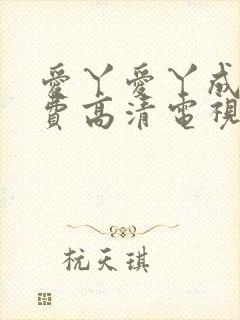 愛丫愛丫成
費高清電視
杭天琪